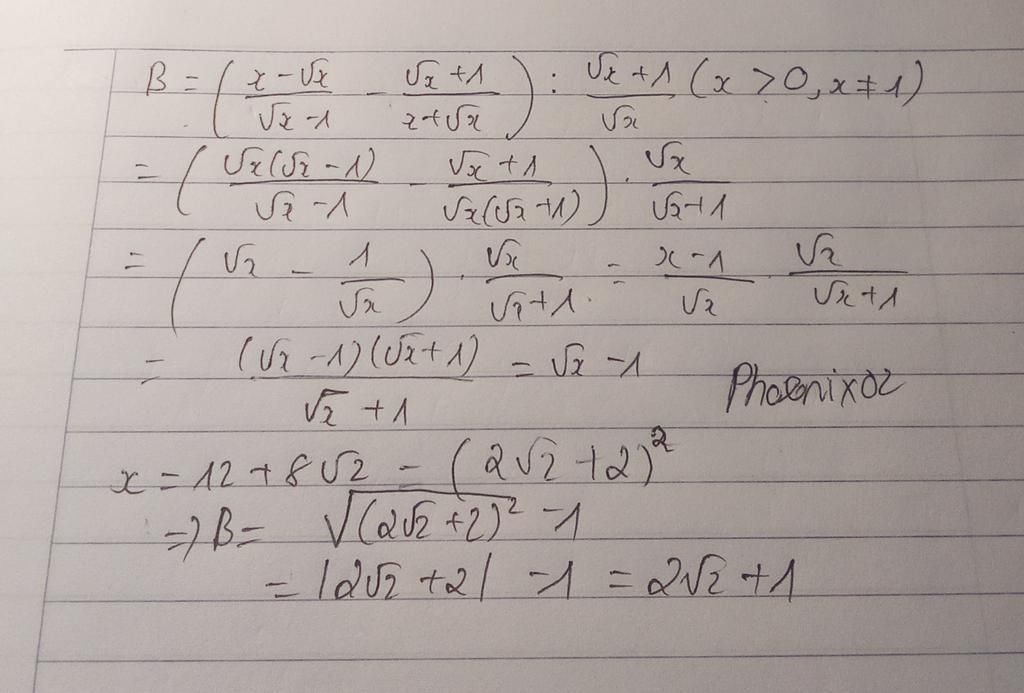 B = ( (x - √x)/(√x - 1) - (√x + 1)/(x + √x) ) : (√x + 1)/√x (x > 0, x ≠ 1)
= ( √x(√x - 1)/(√x - 1) - (√x + 1)/(√x(√x + 1)) ) . √x/(√x + 1)
= ( √x - 1/√x ) . √x/(√x + 1) = (x - 1)/√x . √x/(√x + 1)
= (√x - 1)(√x + 1)/(√x + 1) = √x - 1
Phoenix02
x = 12 + 8√2 = (2√2 + 2)²
=> B = √(2√2 + 2)² - 1
= |2√2 + 2| - 1 = 2√2 + 1